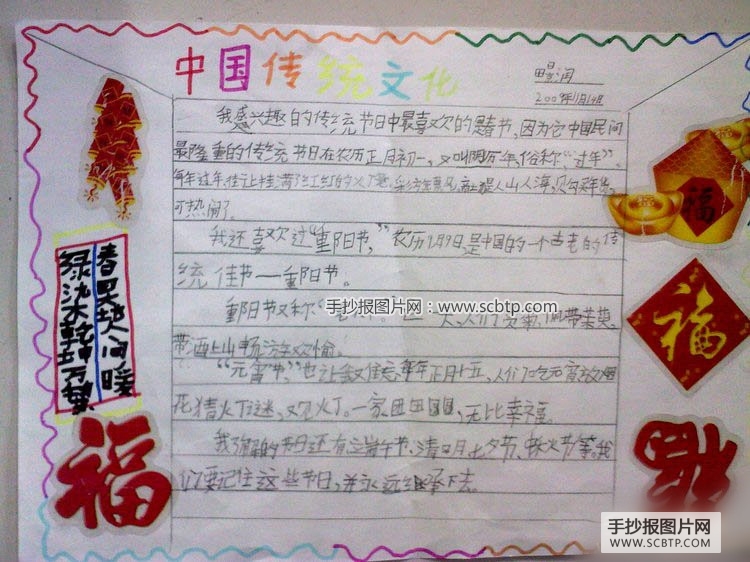 中国传统文化
2009年1月14日
我感兴趣的传统节日中最喜欢的是春节,因为它中国民间
最隆重的传统节日在农历正月初一,又叫阴历年,俗称“过年”。
每年过年,挂满了红红的火
人山人海,
可热闹了。
我还喜欢过“重阳节,”农历9月9日是中国的一个古老的传
统佳节——重阳节。
重阳节又称“
带酒上山畅游欢愉。
“元宵节,”也让我难忘,每年正月十五,人们吃元宵放烟
花猜火丁谜,又见火丁。一家团团圆圆,无比幸福。
我了解的节日还有端午节、清明、七夕节、中秋节等。我
们要记住这些节日,并永远继承下去。
春
人间暖
绿
乾坤万
福
福
福
福
手抄报图片网:www.scbtp.com
手抄报图片网
WWW.SCBTP.COM